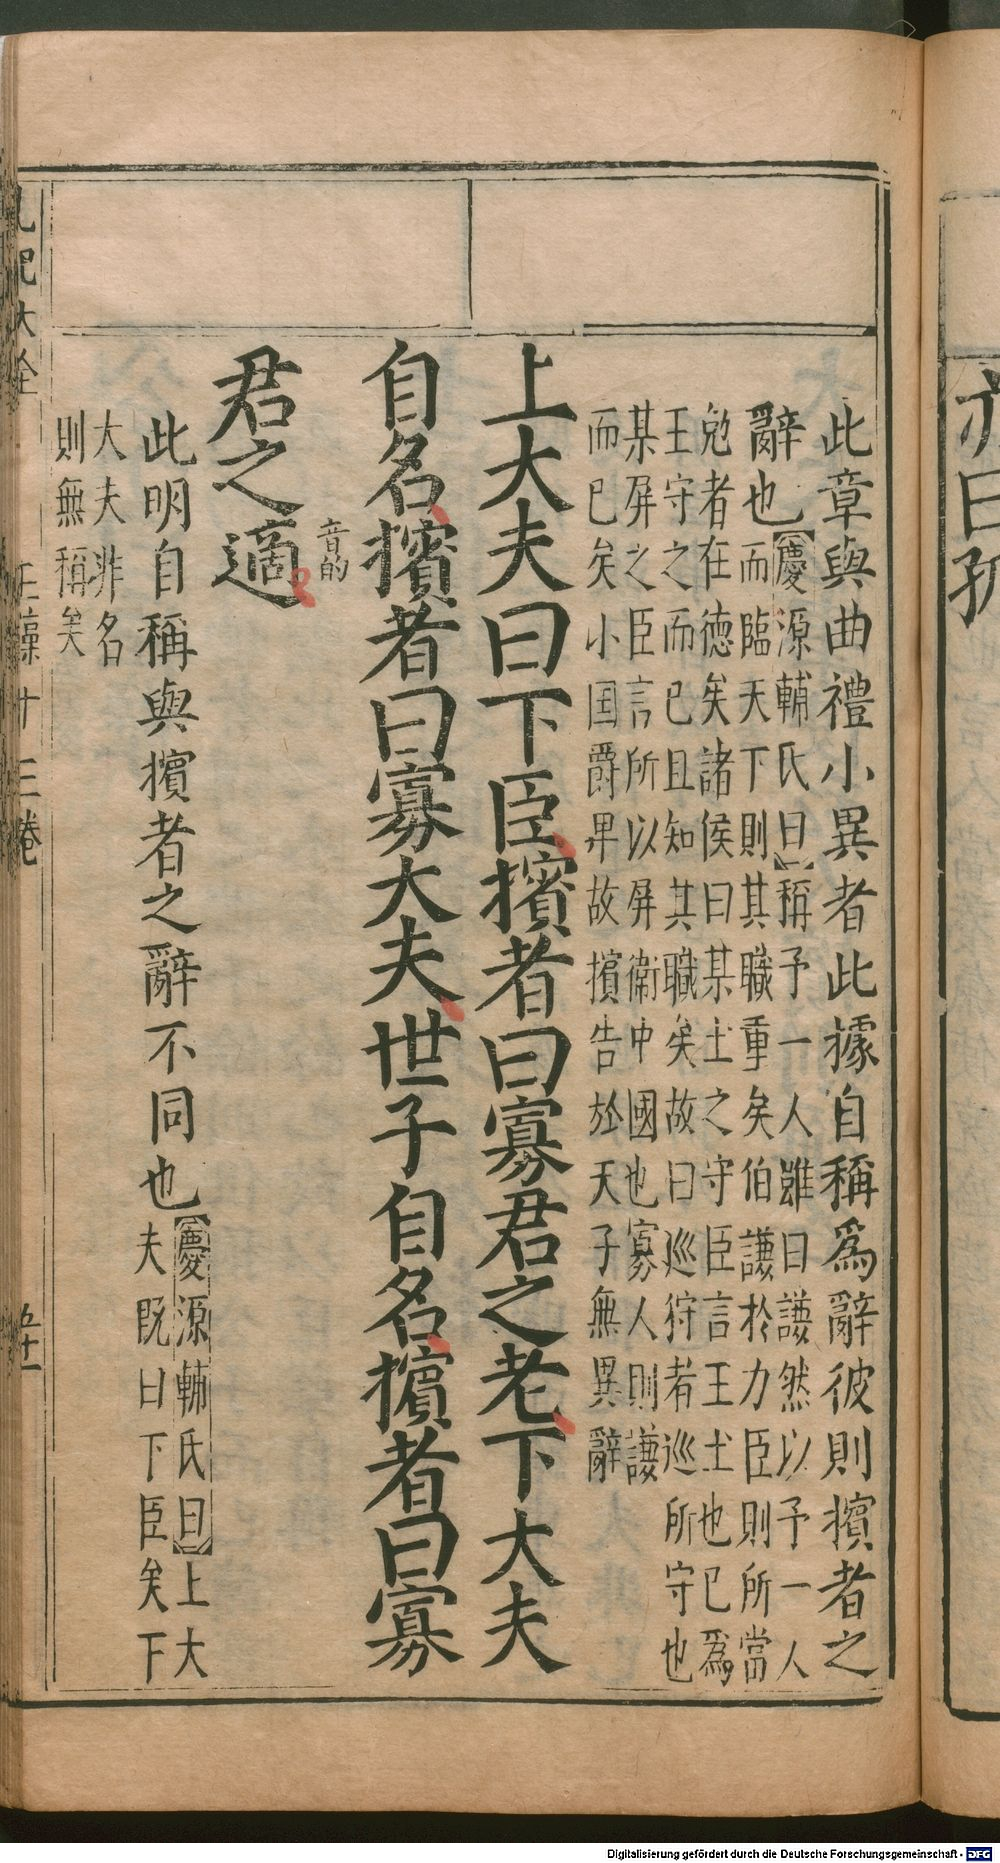 此章與曲禮小異者此據自稱爲辭彼則擯者之
辭也
慶源輔氏曰稱予一人雖曰謙然以予一人
而臨天下則其職重矣伯謙於力臣則所當
勉者在德矣諸侯曰某土之守臣言王土也已爲
王守之而已且知其職矣故曰巡狩者巡所守也
某屏之臣言所以屏衛中國也寡人則謙
而已矣小国爵卑故擯告於天子無異辭
上大夫曰下臣擯者曰寡君之老下大夫
自名擯者曰寡大夫世子自名擯者曰寡
君之適
音的
此明自稱與擯者之辭不同也
慶源輔氏曰上大
夫既曰下臣矣下
大夫非名
則無稱矣
禮記大全
玉藻十三卷
五十一
亦曰孤
Digitalisierung gefördert durch die Deutsche Forschungsgemeinschaft - DFG